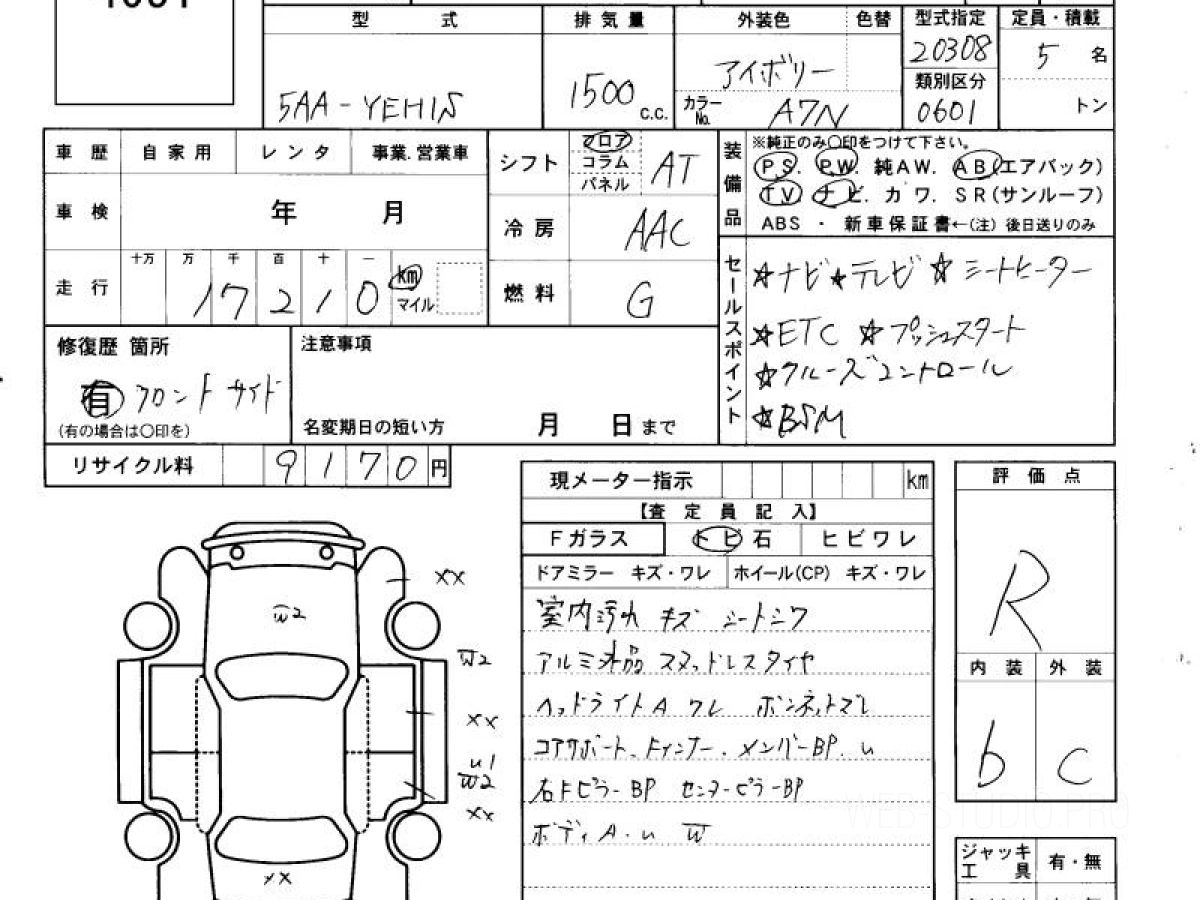 型 式 排気量 外装色 色替 型式指定 定員・積載
5AA-YEH15 1500 c.c. アイボリー 20308 5 名
カラーNo. A7N 類別区分 0601 トン
車歴 自家用 レンタ 事業.営業車
車検 年 月
走行 十万 万 千 百 十 一 km マイル
17210
シフト フロア コラム パネル AT
冷房 AAC
燃料 G
装備品 ※純正のみ○印をつけて下さい。
PS. PW. 純AW. AB(エアバック)
TV ナビ. カワ. SR(サンルーフ)
ABS ・ 新車保証書←(注) 後日送りのみ
セールスポイント ☆ナビ★テレビ☆シートヒーター
☆ETC ☆プッシュスタート
☆クルーズコントロール
☆BSM
修復歴 箇所
有 フロントサイド
(有の場合は○印を)
注意事項
名変期日の短い方 月 日まで
リサイクル料 9170円
現メーター指示 km
【査定員記入】
Fガラス トビ石 ヒビワレ
ドアミラー キズ・ワレ ホイール(CP) キズ・ワレ
室内汚れ キズ シートシワ
アルミ外品 スタッドレスタイヤ
ヘッドライトA ワレ ボンネットズレ
コアサポート. Fインナー. メンバーBP. u
右Fピラー BP センターピラーBP
ボディ A・u W
評価点
R
内装 外装
b c
ジャッキ 工具 有・無
XX
W2
W2
XX
u1
W2
XX
XX
WEB-STUDIO.PRO